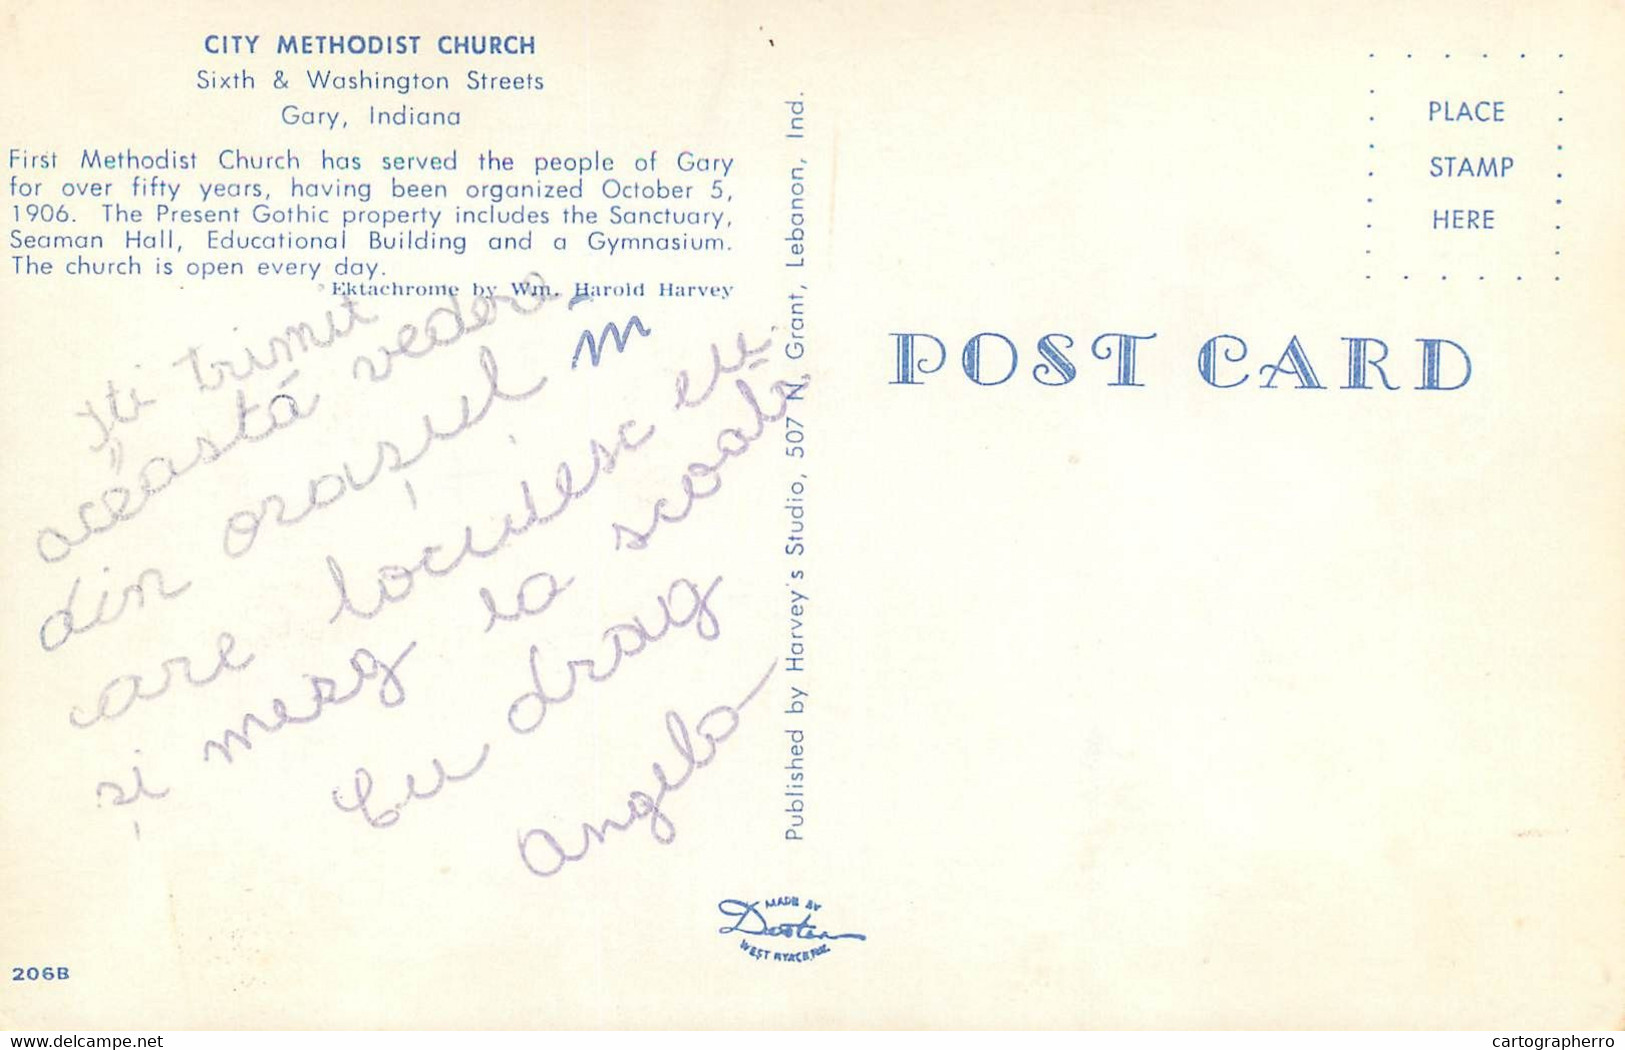 CITY METHODIST CHURCH
Sixth & Washington Streets
Gary, Indiana
First Methodist Church has served the people of Gary
for over fifty years, having been organized October 5,
1906. The Present Gothic property includes the Sanctuary,
Seaman Hall, Educational Building and a Gymnasium.
The church is open every day.
Ektachrome by Wm. Harold Harvey
Iți trimit
această vedere
din orașul în
care locuiesc eu
și merg la școală
Cu drag
Angela
Published by Harvey's Studio, 507 N. Grant, Lebanon, Ind.
PLACE
STAMP
HERE
POST CARD
MADE BY
Dexter
WEST NYACK, N.Y.
206B
delcampe.net
cartographerro